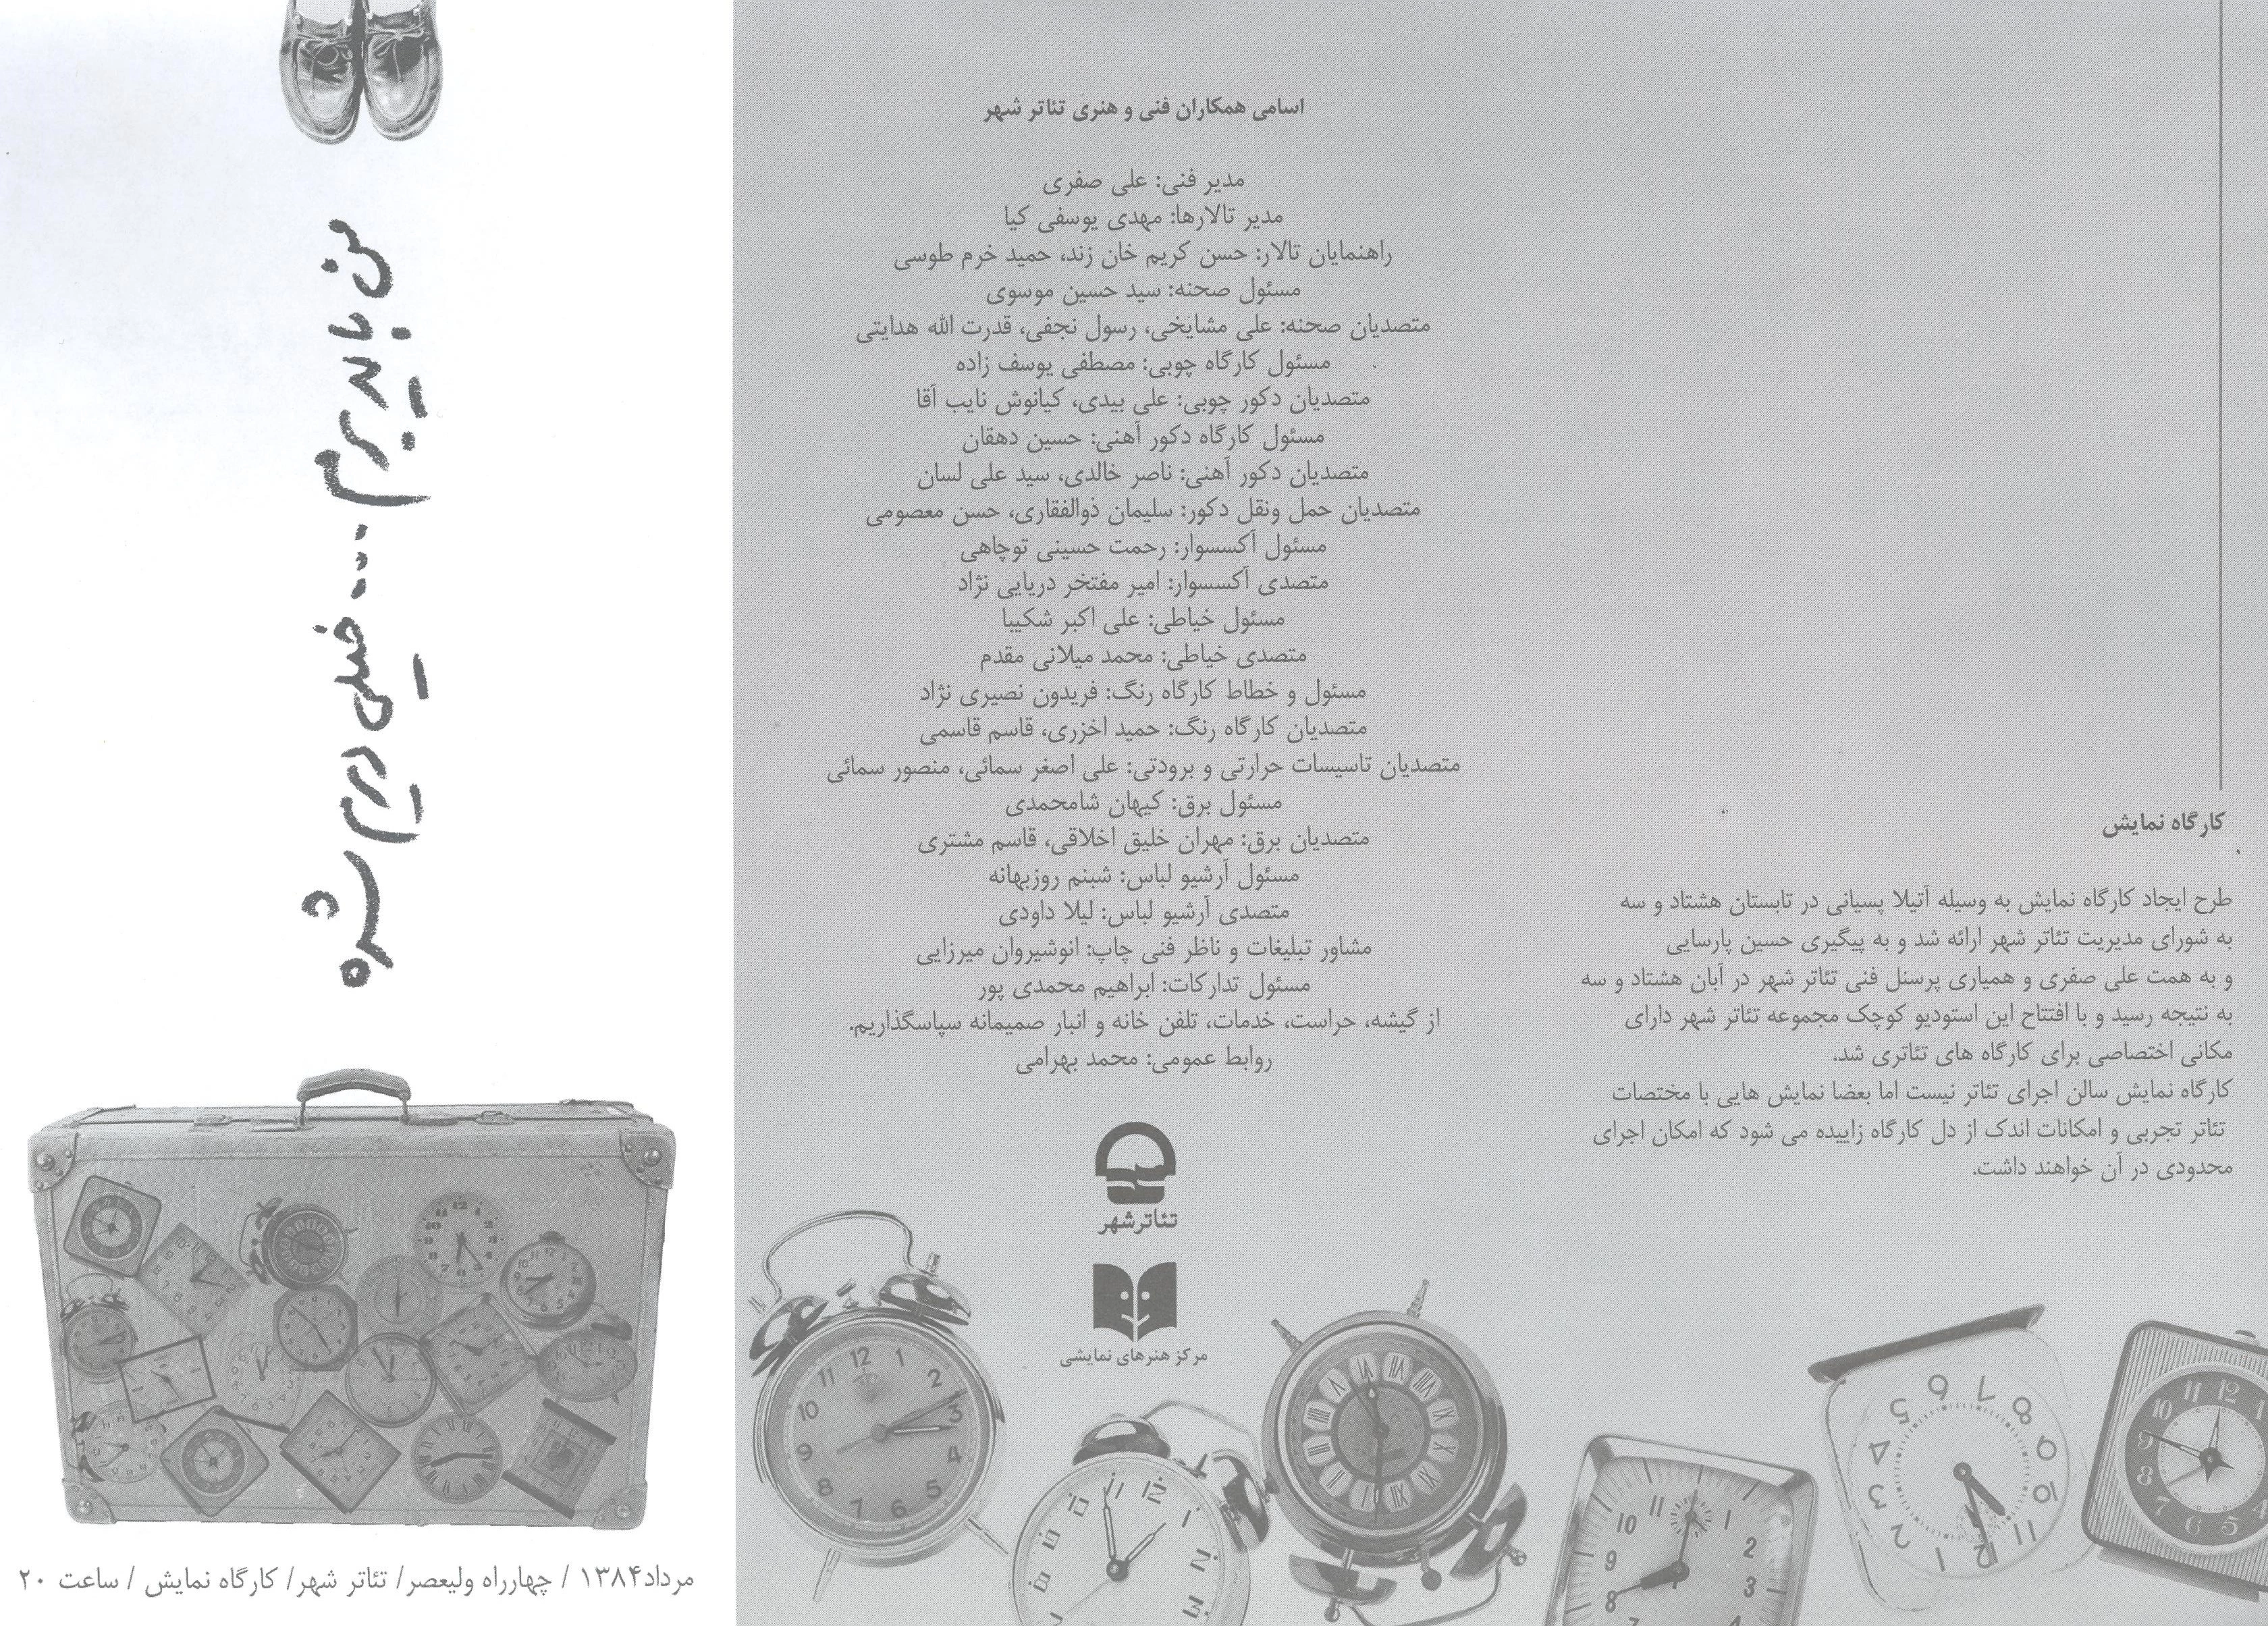 من باید برم... خیلی دیرم شده
مرداد۱۳۸۴ / چهارراه ولیعصر/ تئاتر شهر/ کارگاه نمایش / ساعت ۲۰
اسامی همکاران فنی و هنری تئاتر شهر
مدیر فنی: علی صفری
مدیر تالارها: مهدی یوسفی کیا
راهنمایان تالار: حسن کریم خان زند، حمید خرم طوسی
مسئول صحنه: سید حسین موسوی
متصدیان صحنه: علی مشایخی، رسول نجفی، قدرت الله هدایتی
مسئول کارگاه چوبی: مصطفی یوسف زاده
متصدیان دکور چوبی: علی بیدی، کیانوش نایب آقا
مسئول کارگاه دکور آهنی: حسین دهقان
متصدیان دکور آهنی: ناصر خالدی، سید علی لسان
متصدیان حمل ونقل دکور: سلیمان ذوالفقاری، حسن معصومی
مسئول آکسسوار: رحمت حسینی توچاهی
متصدی آکسسوار: امیر مفتخر دریایی نژاد
مسئول خیاطی: علی اکبر شکیبا
متصدی خیاطی: محمد میلانی مقدم
مسئول و خطاط کارگاه رنگ: فریدون نصیری نژاد
متصدیان کارگاه رنگ: حمید اخزری، قاسم قاسمی
متصدیان تاسیسات حرارتی و برودتی: علی اصغر سمائی، منصور سمائی
مسئول برق: کیهان شامحمدی
متصدیان برق: مهران خلیق اخلاقی، قاسم مشتری
مسئول آرشیو لباس: شبنم روزبهانه
متصدی آرشیو لباس: لیلا داودی
مشاور تبلیغات و ناظر فنی چاپ: انوشیروان میرزایی
مسئول تدارکات: ابراهیم محمدی پور
از گیشه، حراست، خدمات، تلفن خانه و انبار صمیمانه سپاسگذاریم.
روابط عمومی: محمد بهرامی
تئاترشهر
مرکز هنرهای نمایشی
کارگاه نمایش
طرح ایجاد کارگاه نمایش به وسیله آتیلا پسیانی در تابستان هشتاد و سه
به شورای مدیریت تئاتر شهر ارائه شد و به پیگیری حسین پارسایی
و به همت علی صفری و همیاری پرسنل فنی تئاتر شهر در آبان هشتاد و سه
به نتیجه رسید و با افتتاح این استودیو کوچک مجموعه تئاتر شهر دارای
مکانی اختصاصی برای کارگاه های تئاتری شد.
کارگاه نمایش سالن اجرای تئاتر نیست اما بعضا نمایش هایی با مختصات
تئاتر تجربی و امکانات اندک از دل کارگاه زاییده می شود که امکان اجرای
محدودی در آن خواهند داشت.